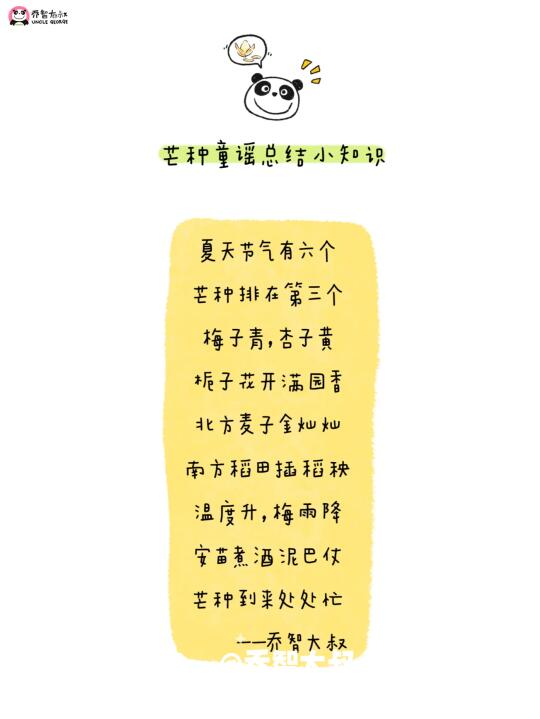 乔智大叔
UNCLE GEORGE
芒种童谣总结小知识
夏天节气有六个
芒种排在第三个
梅子青,杏子黄
栀子花开满园香
北方麦子金灿灿
南方稻田插稻秧
温度升,梅雨降
安苗煮酒泥巴仗
芒种到来处处忙
——乔智大叔
@乔智大叔